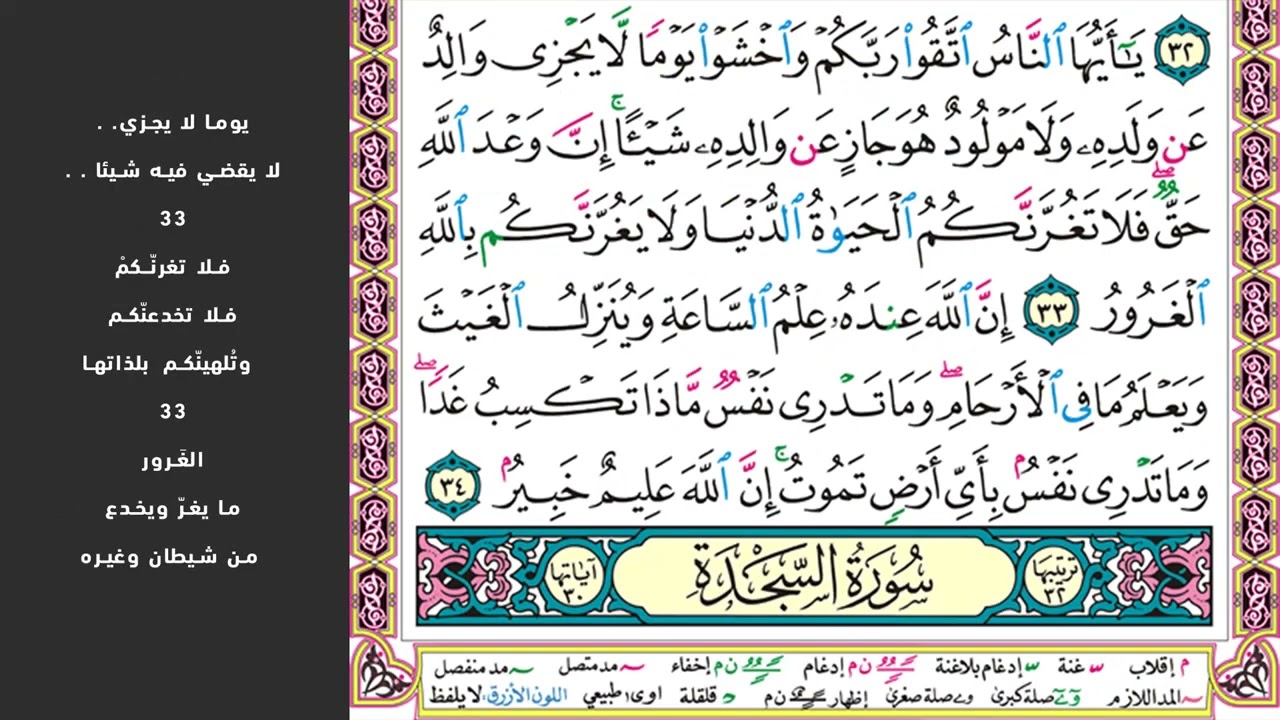 يوما لا يجزي. .
لا يقضي فيه شيئا . .
33
فلا تغرنّكمْ
فلا تخدعنّكم
وتُلهينّكم بلذاتها
33
الغَرور
ما يغرّ ويخدع
من شيطان وغيره
٣٢ يَـٰٓأَيُّهَا ٱلنَّاسُ ٱتَّقُوا۟ رَبَّكُمْ وَٱخْشَوْا۟ يَوْمًا لَّا يَجْزِى وَالِدٌ
عَن وَلَدِهِۦ وَلَا مَوْلُودٌ هُوَ جَازٍ عَن وَالِدِهِۦ شَيْـًٔا ۚ إِنَّ وَعْدَ ٱللَّهِ
حَقٌّ ۖ فَلَا تَغُرَّنَّكُمُ ٱلْحَيَوٰةُ ٱلدُّنْيَا وَلَا يَغُرَّنَّكُم بِٱللَّهِ
ٱلْغَرُورُ ٣٣ إِنَّ ٱللَّهَ عِندَهُۥ عِلْمُ ٱلسَّاعَةِ وَيُنَزِّلُ ٱلْغَيْثَ
وَيَعْلَمُ مَا فِى ٱلْأَرْحَامِ ۖ وَمَا تَدْرِى نَفْسٌ مَّاذَا تَكْسِبُ غَدًا ۖ
وَمَا تَدْرِى نَفْسٌۢ بِأَىِّ أَرْضٍ تَمُوتُ ۚ إِنَّ ٱللَّهَ عَلِيمٌ خَبِيرٌۢ ٣٤
ترتيبها ٣٢ سُورَةُ السَّجْدَةِ آياتها ٣٠
م إقلاب س غنة س إدغام بلاغنة ن م إدغام ن م إخفاء مد متصل مد منفصل
المد اللازم صلة كبرى و ے صلة صغرى إظهار ن م قلقلة اوى طبيعي اللون الأزرق: لا يلفظ